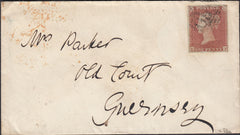 Mrs Parker
Old Court
Guernsey